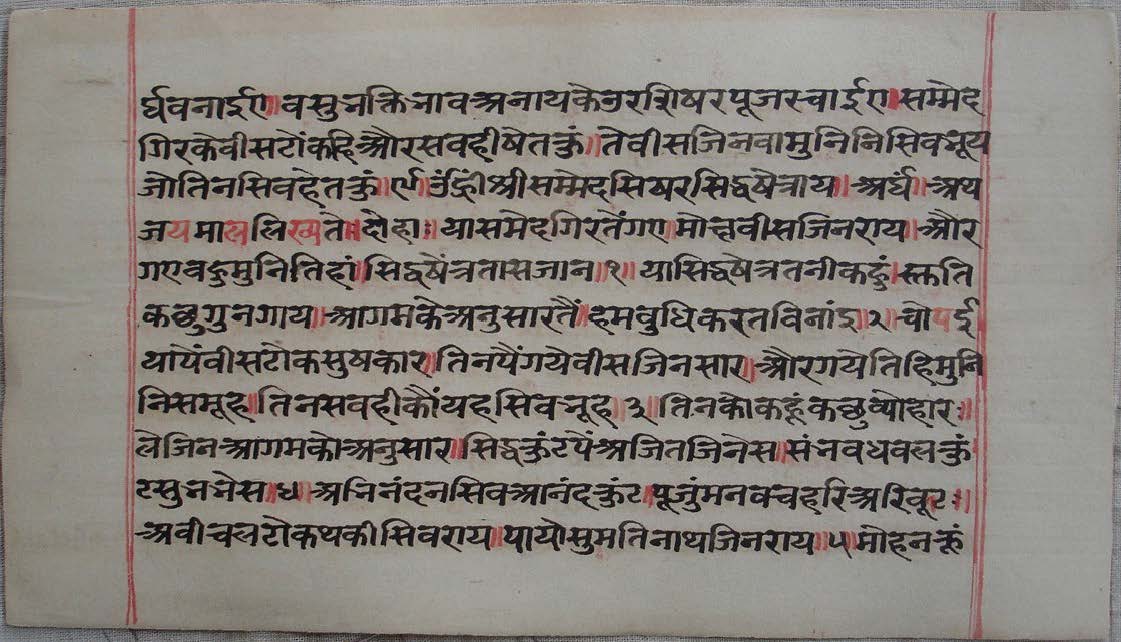 र्घवनाईए॥वसुभक्तिभावअनायकेउरशिषरपूजरचाईए॥सम्मेद
गिरकेवीसटौंकहिऔरसवहीषेतकुं॥तेवीसजिनवामुनिनिसिवभूय
जोतिनसिवहेतकुं॥ ॥उंह्रीश्रीसम्मेदसिषरसिद्धषेत्राय॥अर्घं॥अथ
जयमाललिख्यते॥दोहा॥यासमेदगिरतेंगए॥मोछवीसजिनराय॥और
गएवहुमुनितिहां॥सिद्धषेंत्रतासजान॥१॥यासिद्धषेत्रतनीकहुं॥स्तति
कछुगुनगाय॥आगमकेअनुसारतैं॥हमवुधिकरतविनांइ॥२॥चौपई
थायेंवीसटोकसुषकार॥तिनपैंगयेवीसजिनसार॥औरगयेतिहिमुनि
निसमूह॥तिनसवहीकौंयहसिवभूह॥३॥तिनकोकहूंकछुव्योहार॥
लेजिनआगमकोअनुसार॥सिद्धकुंटपेंअजितजिनेस॥संभवधवलकुं
टसुभभेस॥४॥अभिनंदनसिवआनंदकुंट॥पूजुंमनवचहरिअरिवूट॥
अवीचलटोकथकीसिवराय॥पायोसुमतिनाथजिनराय॥५॥मोहनकूं